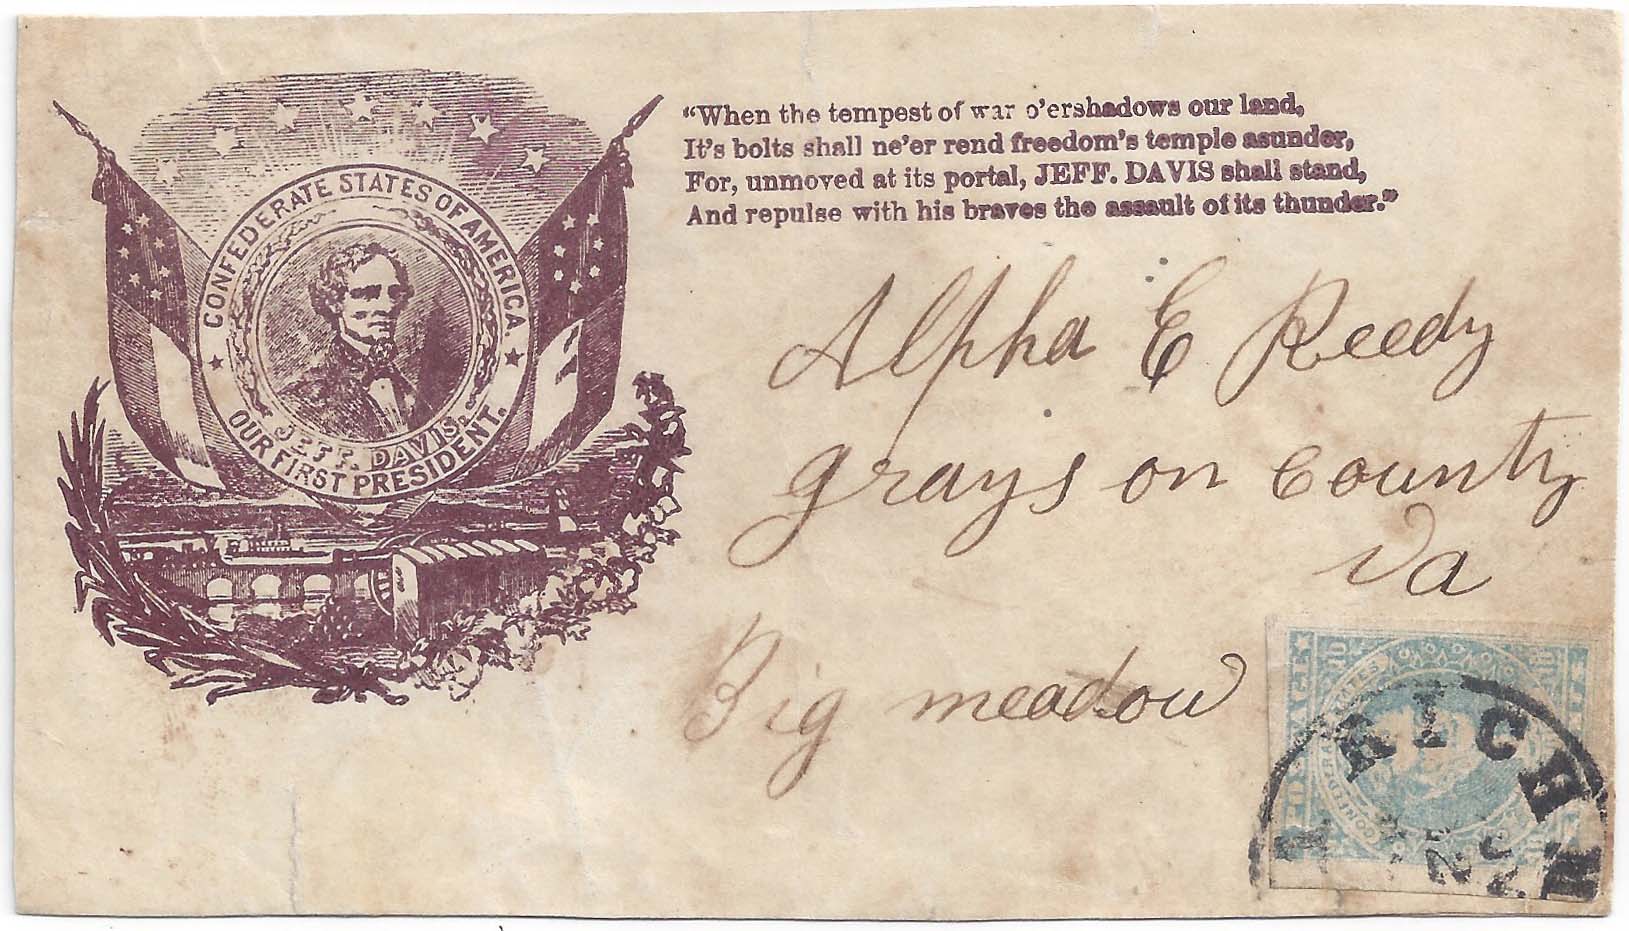 CONFEDERATE STATES OF AMERICA.
JEFF. DAVIS.
OUR FIRST PRESIDENT.
“When the tempest of war o’ershadows our land,
It’s bolts shall ne’er rend freedom’s temple asunder,
For, unmoved at its portal, JEFF. DAVIS shall stand,
And repulse with his braves the assault of its thunder.”
Alpha E Reedy
grays on county
va
Big meadow
RICHM